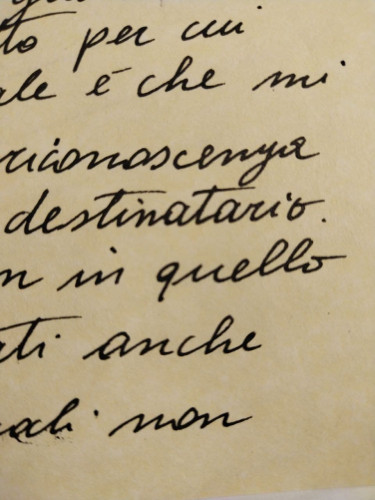 to per cui
ale è che mi
riconoscenza
destinatario.
n in quello
ati anche
ali non